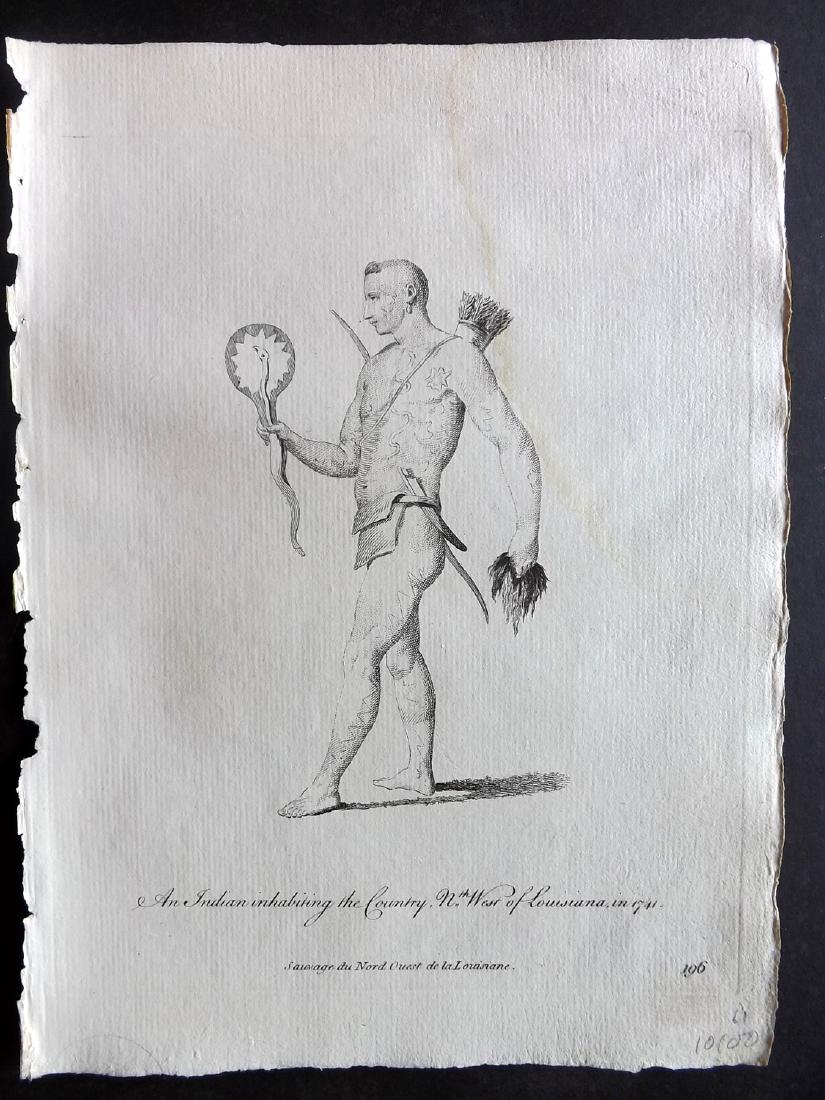 An Indian inhabiting the Country, Nth. West of Louisiana, in 1741.
Sauvage du Nord Ouest de la Louisiane.
196